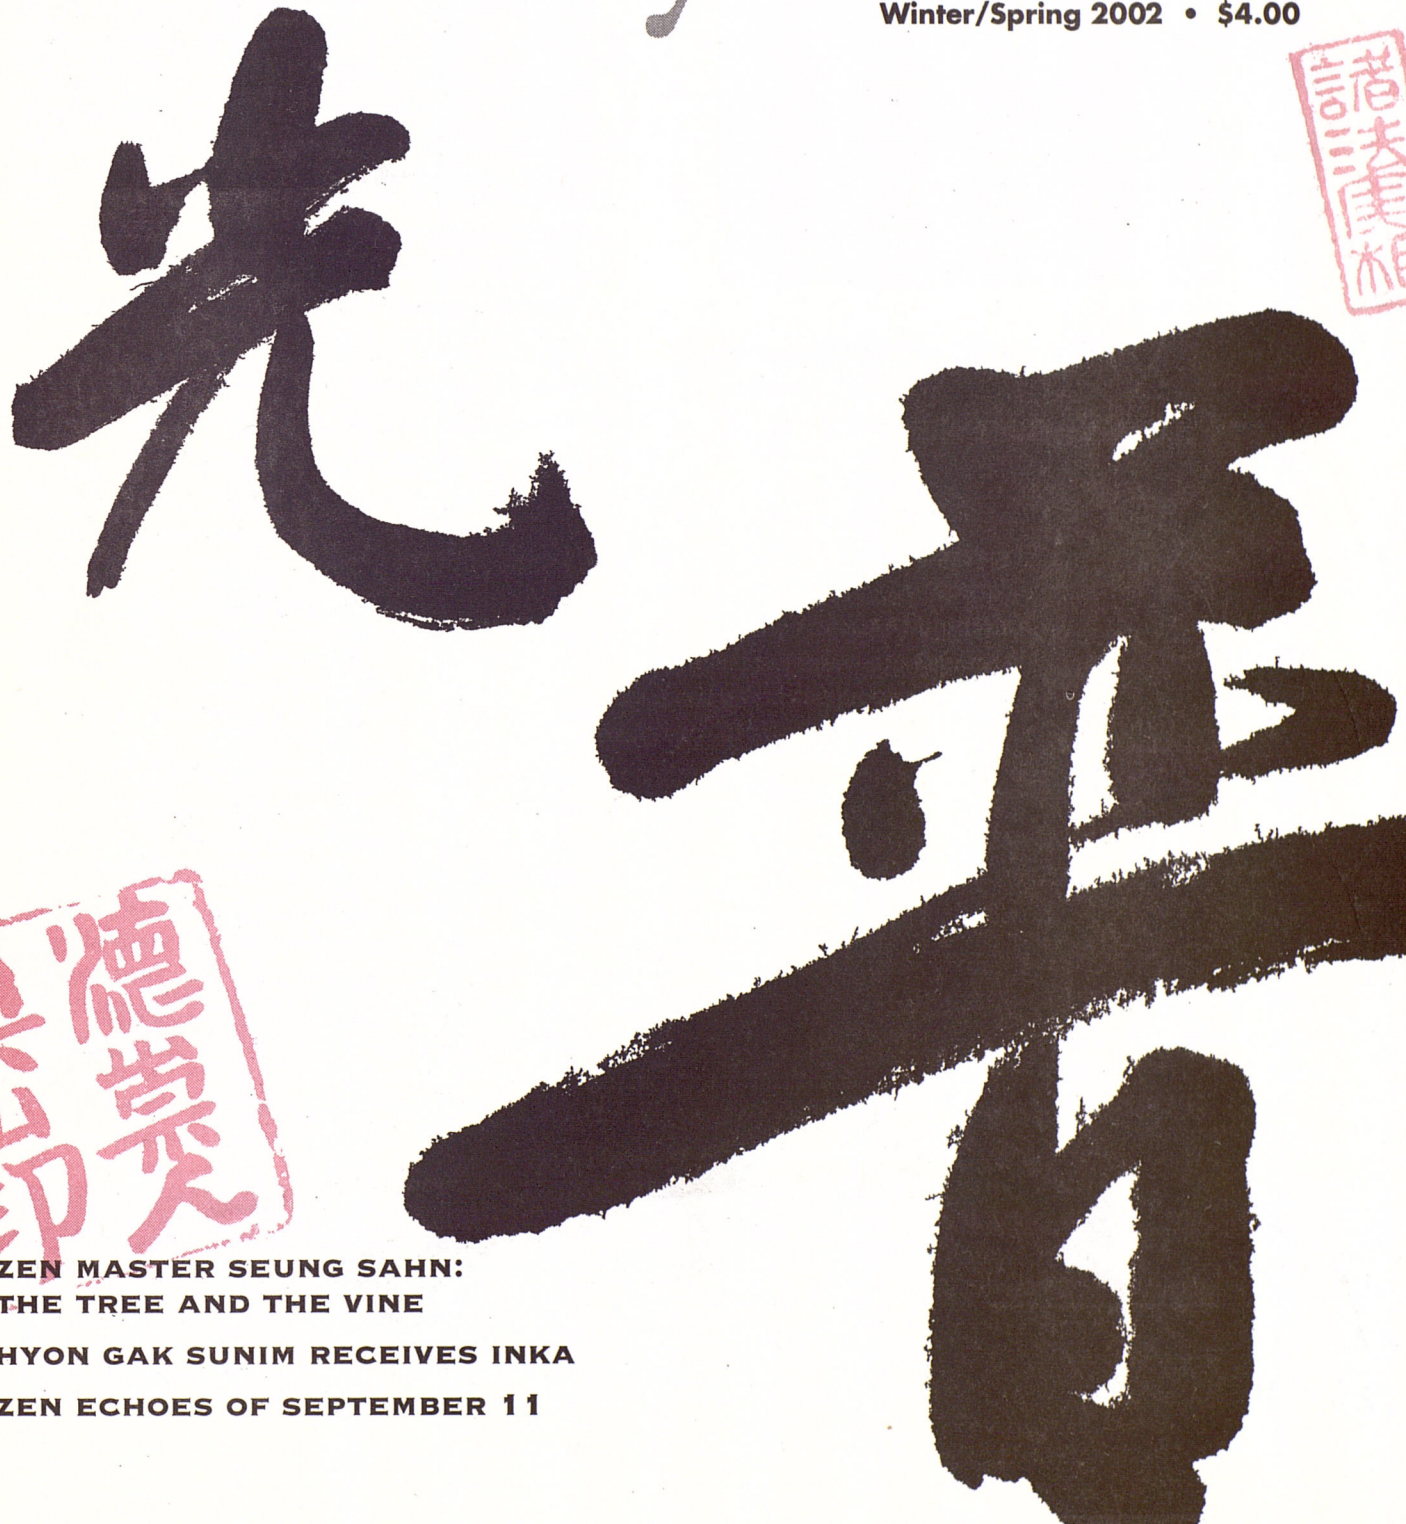 Winter/Spring 2002 • $4.00
諸法實相
普光
德崇
印
ZEN MASTER SEUNG SAHN:
THE TREE AND THE VINE
HYON GAK SUNIM RECEIVES INKA
ZEN ECHOES OF SEPTEMBER 11